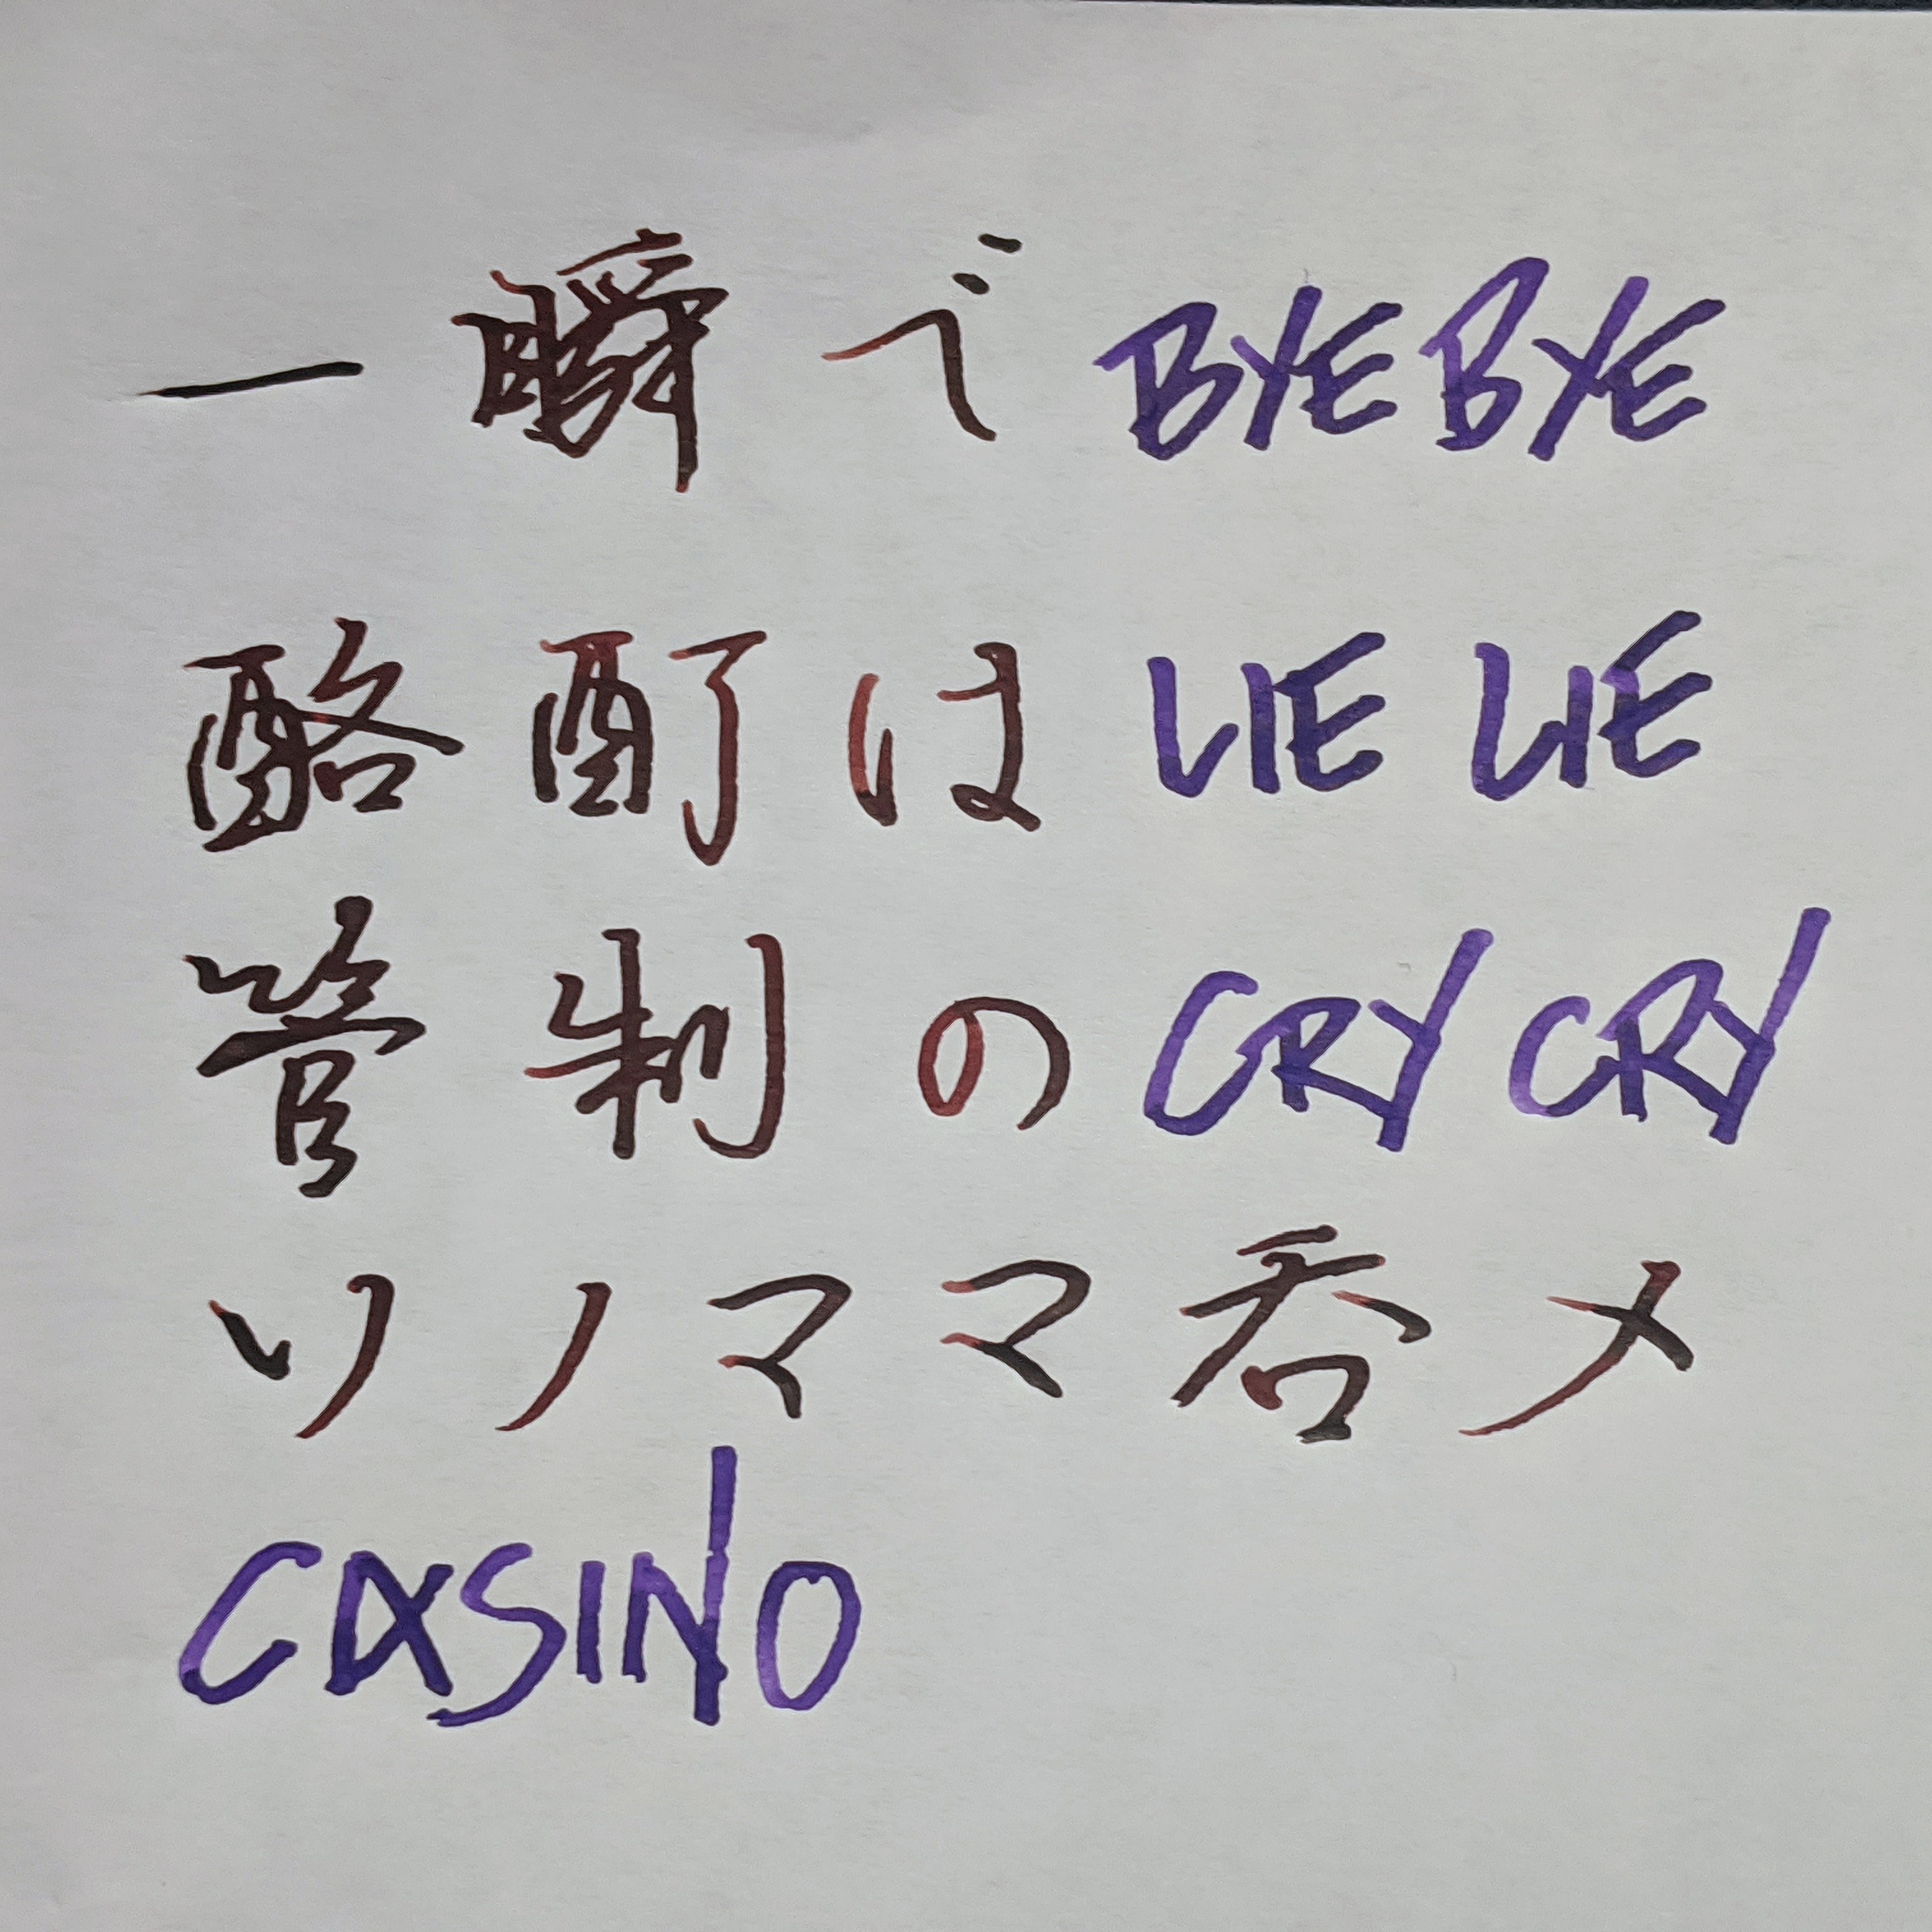 一瞬でBYEBYE
酩酊はLIE LIE
管制のCRY CRY
ソノママ呑メ
CASINO